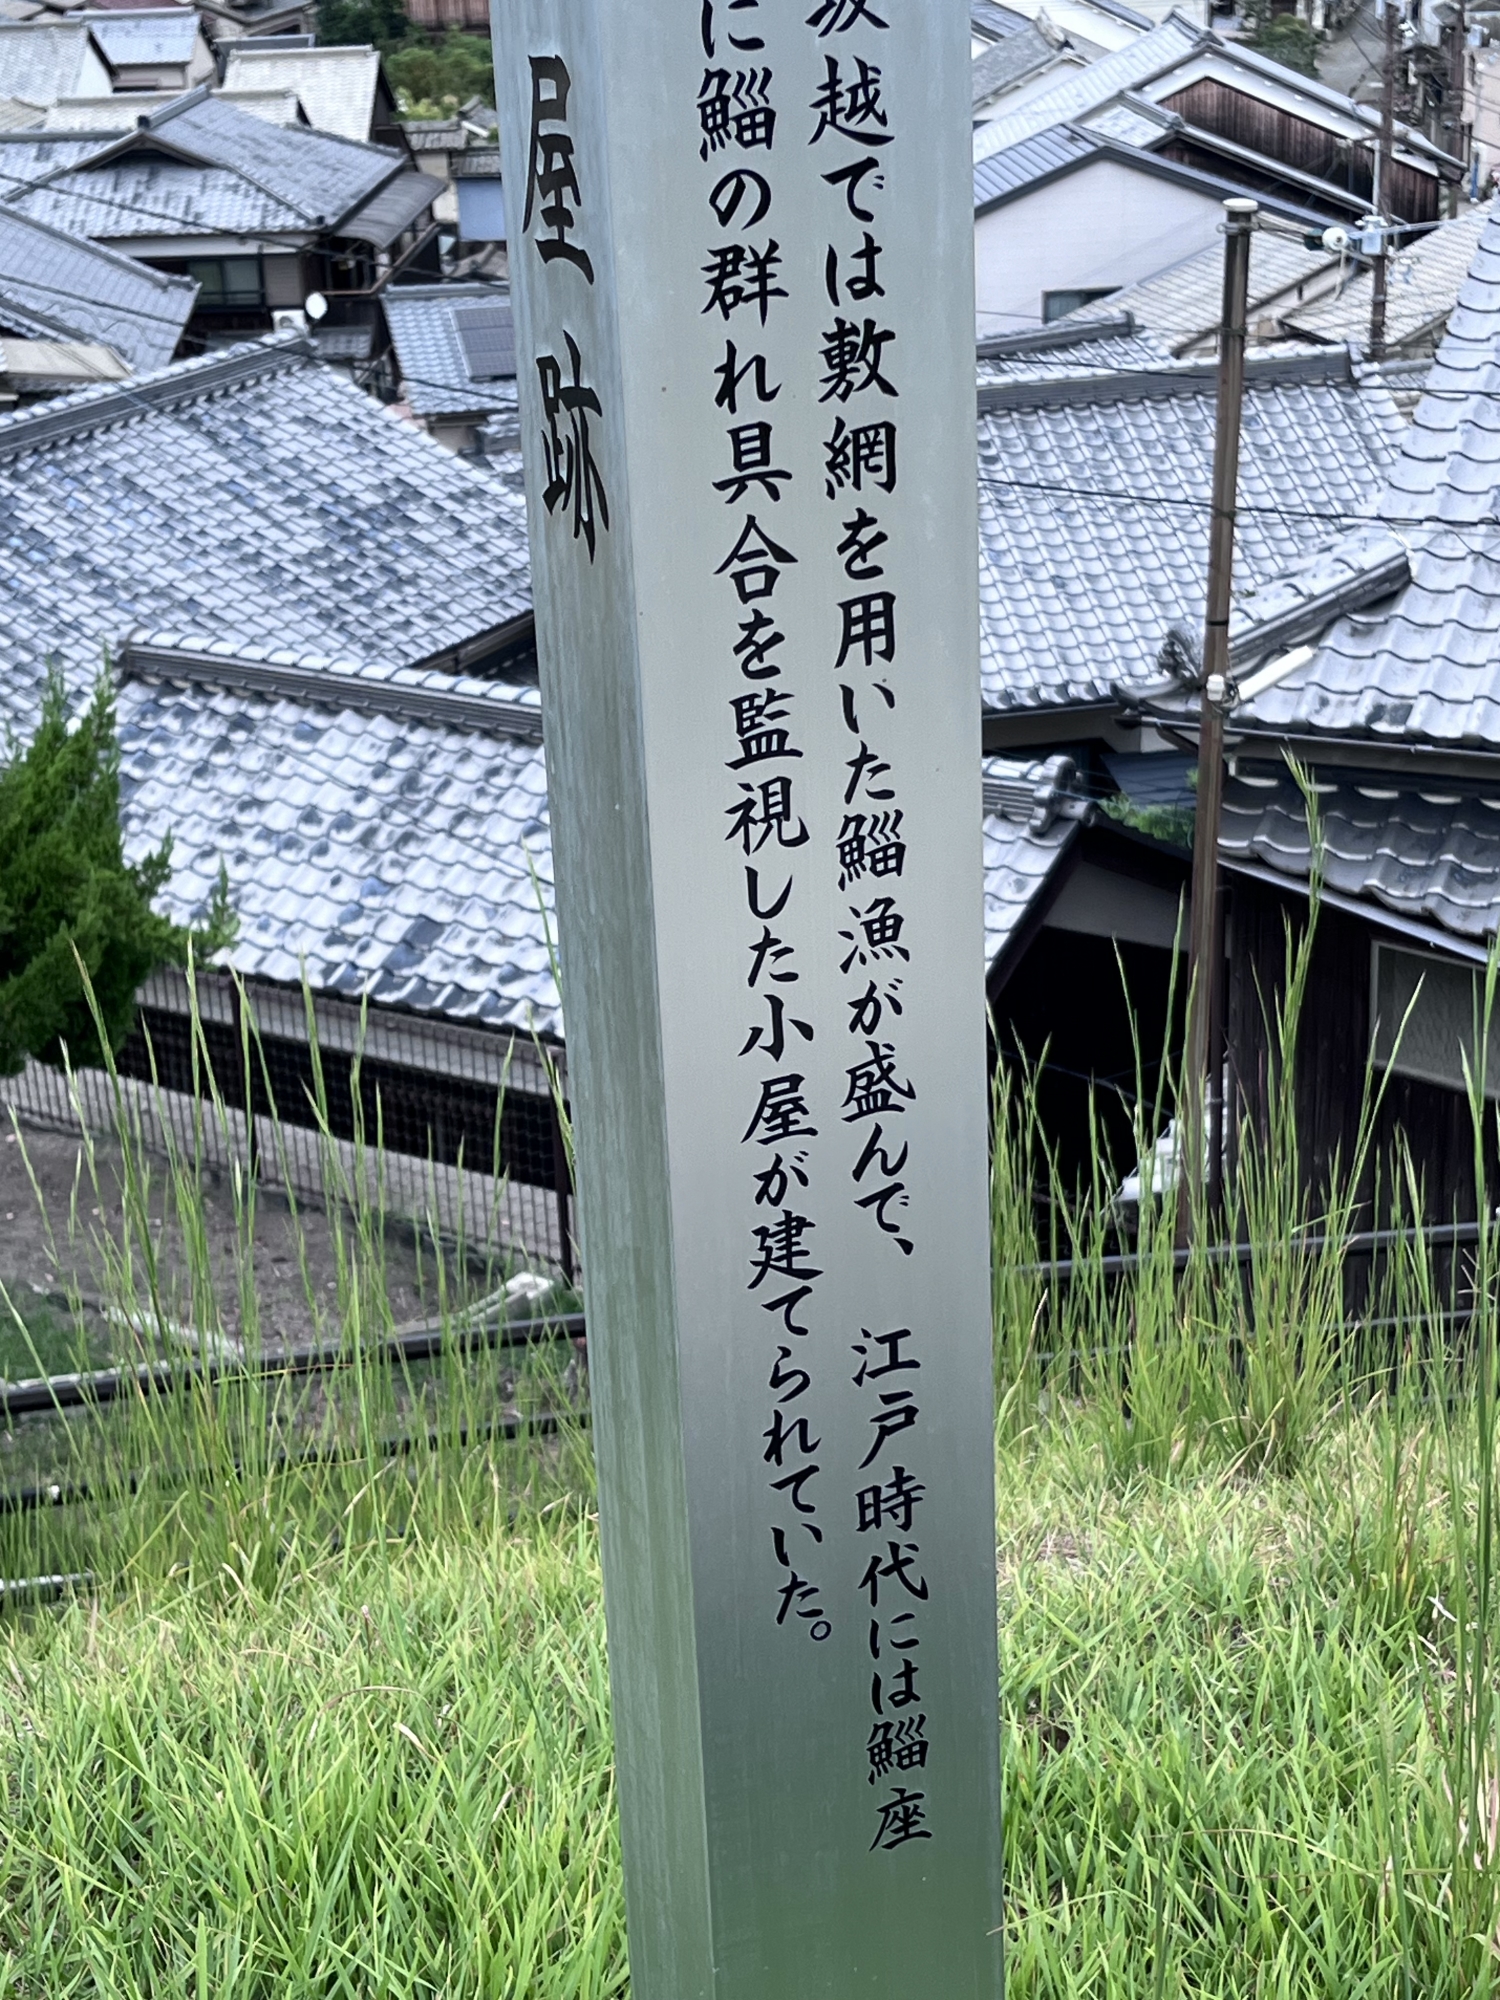 坂越では敷網を用いた鯔漁が盛んで、江戸時代には鯔座
に鯔の群れ具合を監視した小屋が建てられていた。
屋跡